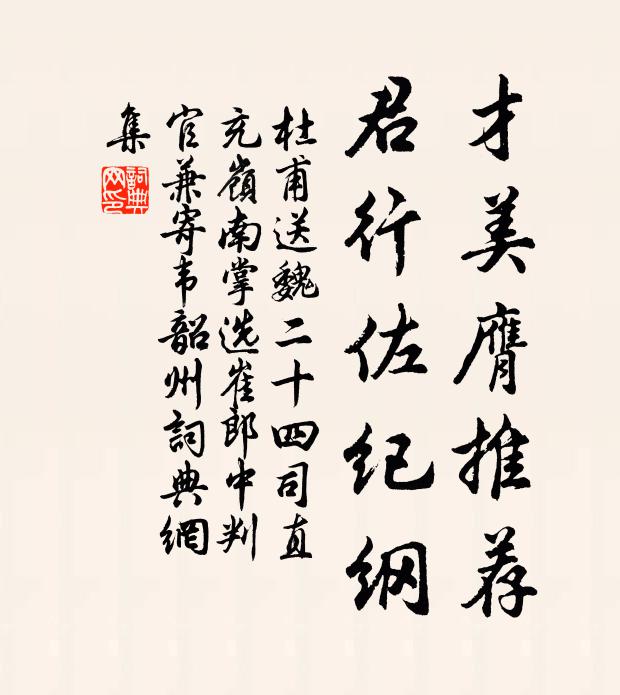 才美膺推荐
君行佐纪纲
杜甫送魏二十四司直
充嶺南掌选崔郎中判
官兼寄韦韶州詞典網
集
詞典
网印